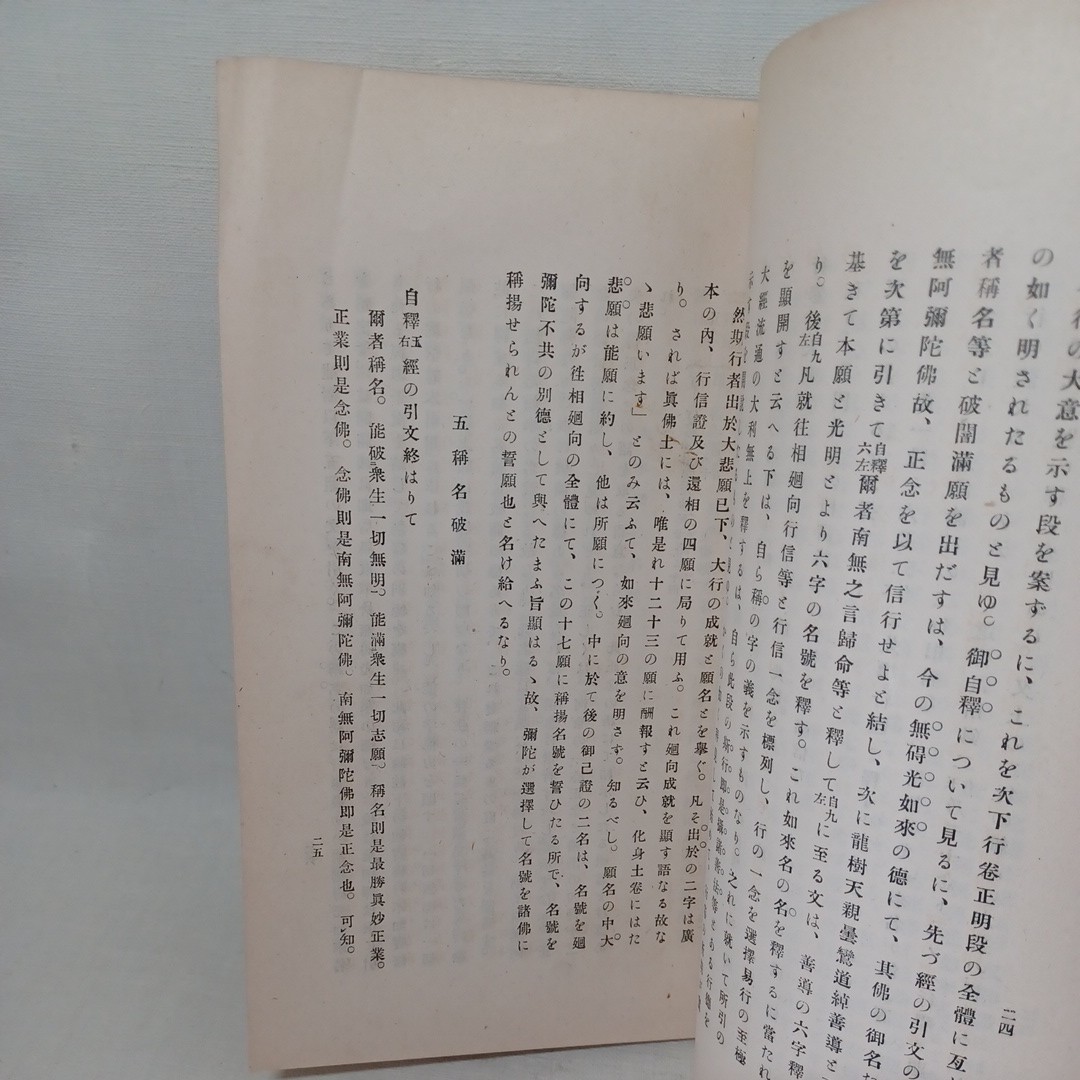 行の大意を示す段を案ずるに、これを次下行卷正明段の全體に亙
の如く明されたるものと見ゆ。御自釋について見るに、先づ經の引文の
者稱名等と破闇滿願を出だすは、今の無碍光如來の德にて、其佛の御名な
無阿彌陀佛故、正念を以て信行せよと結し、次に龍樹天親曇鸞道綽善導と
を次第に引きて自釋六左爾者南無之言歸命等と釋して自九左に至る文は、善導の六字釋
基きて本願と光明とより六字の名號を釋す。これ如來名の名を釋するに當たれ
り。後自九左凡就往相廻向行信等と行信一念を標列し、行の一念を選擇易行の至極
を顯開すと云へる下は、自ら稱の字の義を示すものなり。之れに就いて所引の
大經流通の大利無上を釋するは、自ら此段の
然斯行者出於大悲願已下、大行の成就と願名とを擧ぐ。凡そ出於の二字は廣
本の內、行信證及び還相の四願に局りて用ふ。これ廻向成就を顯す語なる故な
り。されば眞佛土には、唯是れ十二十三の願に酬報すと云ひ、化身土卷にはた
ゝ悲願います」とのみ云ふて、如來廻向の意を明さず。知るべし。願名の中大
悲願は能願に約し、他は所願につく。中に於て後の御己證の二名は、名號を廻
向するが徃相廻向の全體にて、この十七願に稱揚名號を誓ひたる所で、名號を
彌陀不共の別德として與へたまふ旨顯はるゝ故、彌陀が選擇して名號を諸佛に
稱揚せられんとの誓願也と名け給へるなり。
五 稱 名 破 滿
自釋五右經の引文終はりて
爾者稱名。能破衆生一切無明。能滿衆生一切志願。稱名則是最勝眞妙正業。
正業則是念佛。念佛則是南無阿彌陀佛。南無阿彌陀佛即是正念也。可知。
二四
二五